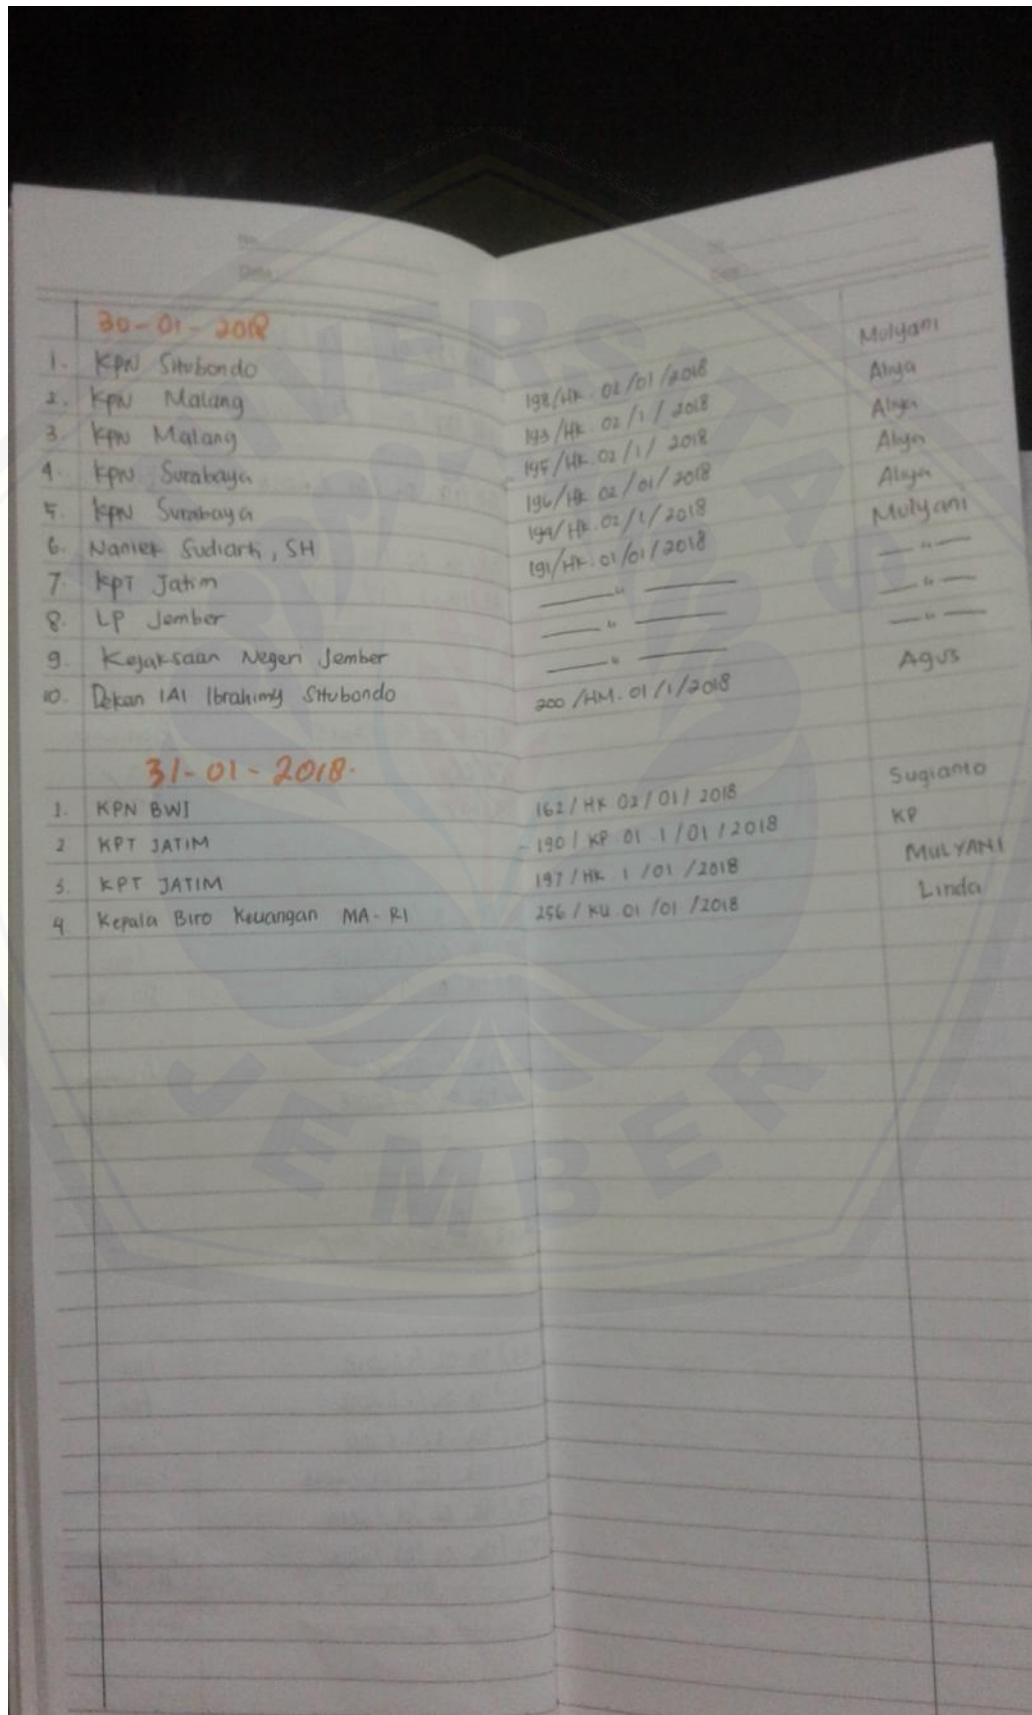 No.
Date
No
Date
30-01-2018
1. KPN Situbondo 198/HK.02/01/2018 Mulyani
2. KPN Malang 193/HK.02/1/2018 Alrya
3. KPN Malang 195/HK.02/1/2018 Alrya
4. KPN Surabaya 196/HK.02/01/2018 Alrya
5. KPN Surabaya 199/HK.02/1/2018 Alrya
6. Naniek Sudiarti, SH 191/HK.01/01/2018 Mulyani
7. KPT Jatim — " — — " —
8. LP Jember — " — — " —
9. Kejaksaan Negeri Jember — " — — " —
10. Dekan IAI Ibrahimy Situbondo 200/HM.01/1/2018 Agus
31-01-2018.
1. KPN BWI 162/HK 02/01/2018 Sugianto
2 KPT JATIM - 190/KP 01.1/01/2018 KP
3. KPT JATIM 197/HK 1/01/2018 MULYANI
4 Kepala Biro Keuangan MA-RI 256/KU.01/01/2018 Linda
UNIVERSITAS
JEMBER